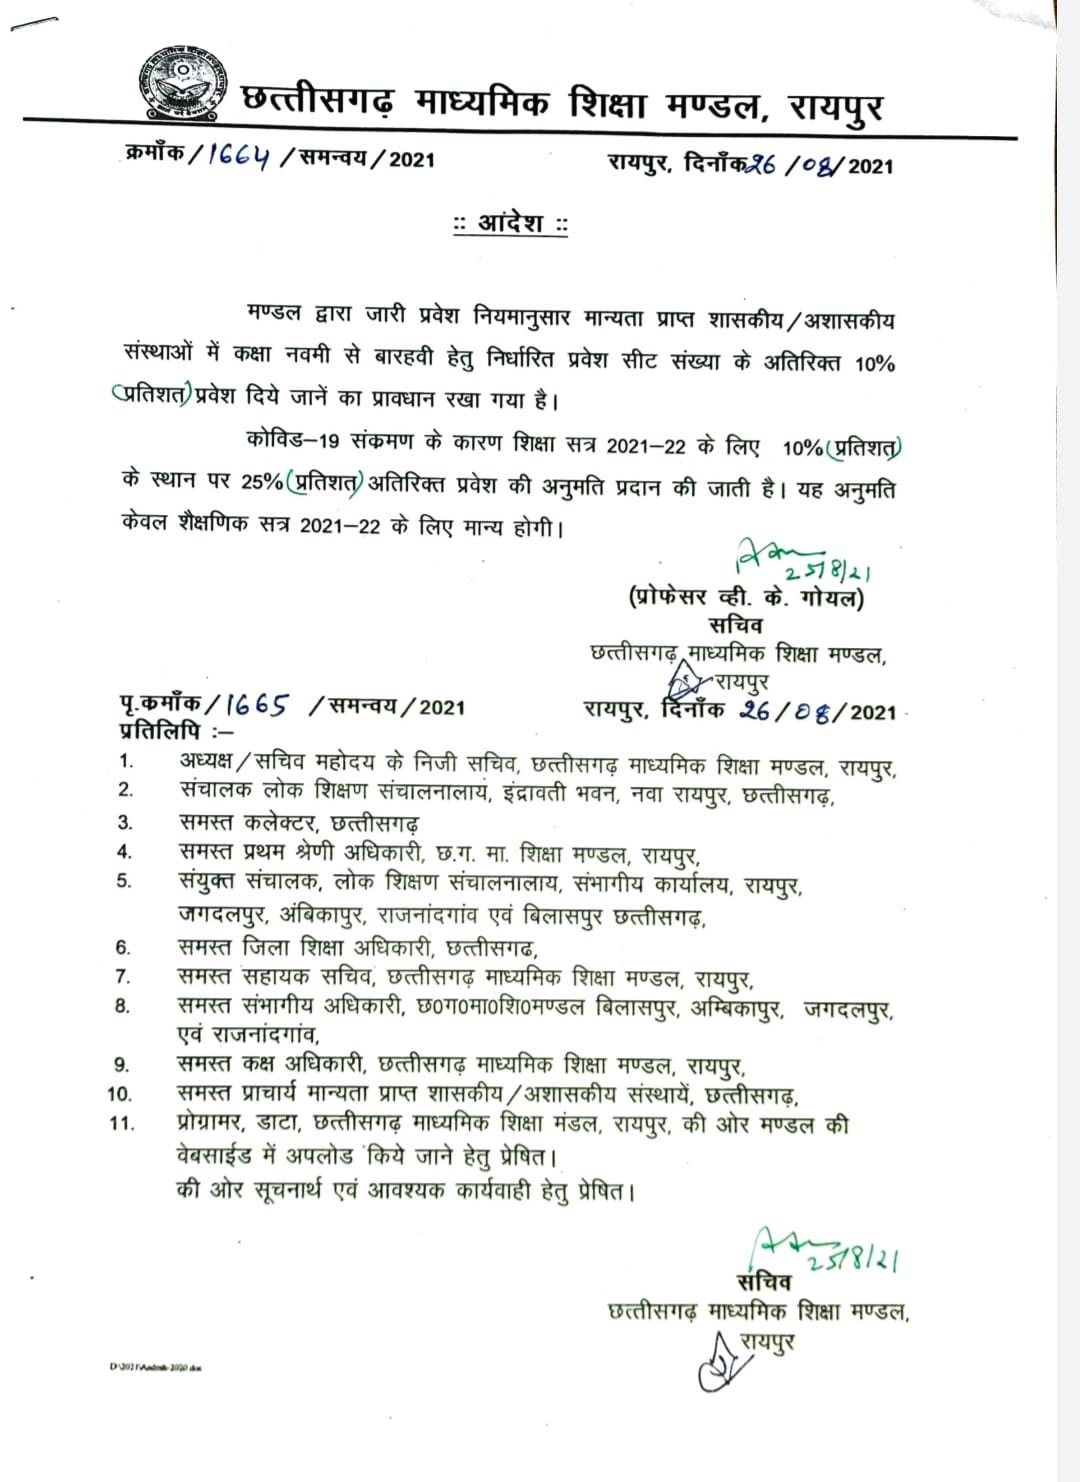 छत्तीसगढ़ माध्यमिक शिक्षा मण्डल, रायपुर
क्रमाँक/1664/समन्वय/2021 रायपुर, दिनाँक26/08/2021
:: आंदेश ::
मण्डल द्वारा जारी प्रवेश नियमानुसार मान्यता प्राप्त शासकीय/अशासकीय
संस्थाओं में कक्षा नवमी से बारहवी हेतु निर्धारित प्रवेश सीट संख्या के अतिरिक्त 10%
(प्रतिशत) प्रवेश दिये जानें का प्रावधान रखा गया है।
कोविड–19 संक्रमण के कारण शिक्षा सत्र 2021–22 के लिए 10%(प्रतिशत)
के स्थान पर 25%(प्रतिशत) अतिरिक्त प्रवेश की अनुमति प्रदान की जाती है। यह अनुमति
केवल शैक्षणिक सत्र 2021–22 के लिए मान्य होगी।
25/8/21
(प्रोफेसर व्ही. के. गोयल)
सचिव
छत्तीसगढ़ माध्यमिक शिक्षा मण्डल,
रायपुर
पृ.कमाँक/1665 /समन्वय/2021 रायपुर, दिनाँक 26/08/2021
प्रतिलिपि :–
1. अध्यक्ष/सचिव महोदय के निजी सचिव, छत्तीसगढ़ माध्यमिक शिक्षा मण्डल, रायपुर,
2. संचालक लोक शिक्षण संचालनालाय, इंद्रावती भवन, नवा रायपुर, छत्तीसगढ़,
3. समस्त कलेक्टर, छत्तीसगढ़
4. समस्त प्रथम श्रेणी अधिकारी, छ.ग. मा. शिक्षा मण्डल, रायपुर,
5. संयुक्त संचालक, लोक शिक्षण संचालनालाय, संभागीय कार्यालय, रायपुर,
जगदलपुर, अंबिकापुर, राजनांदगांव एवं बिलासपुर छत्तीसगढ़,
6. समस्त जिला शिक्षा अधिकारी, छत्तीसगढ,
7. समस्त सहायक सचिव, छत्तीसगढ़ माध्यमिक शिक्षा मण्डल, रायपुर,
8. समस्त संभागीय अधिकारी, छ0ग0मा0शि0मण्डल बिलासपुर, अम्बिकापुर, जगदलपुर,
एवं राजनांदगांव,
9. समस्त कक्ष अधिकारी, छत्तीसगढ़ माध्यमिक शिक्षा मण्डल, रायपुर,
10. समस्त प्राचार्य मान्यता प्राप्त शासकीय/अशासकीय संस्थायें, छत्तीसगढ़,
11. प्रोग्रामर, डाटा, छत्तीसगढ़ माध्यमिक शिक्षा मंडल, रायपुर, की ओर मण्डल की
वेबसाईड में अपलोड किये जाने हेतु प्रेषित।
की ओर सूचनार्थ एवं आवश्यक कार्यवाही हेतु प्रेषित।
25/8/21
सचिव
छत्तीसगढ़ माध्यमिक शिक्षा मण्डल,
रायपुर